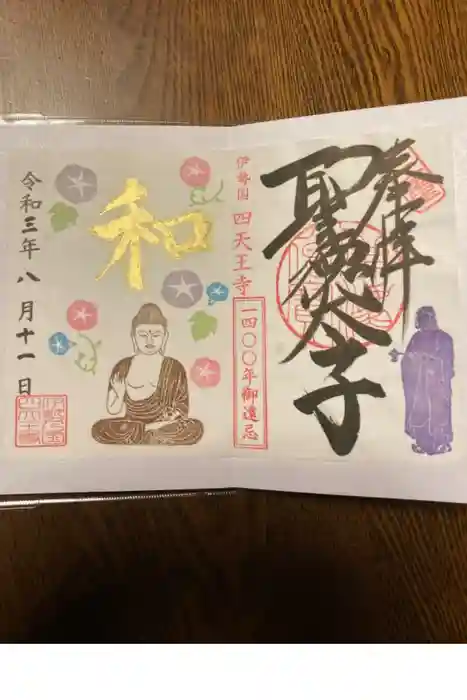 奉拝
聖徳太子
伊勢国 四天王寺
一四〇〇年御遠忌
和
令和三年八月十一日